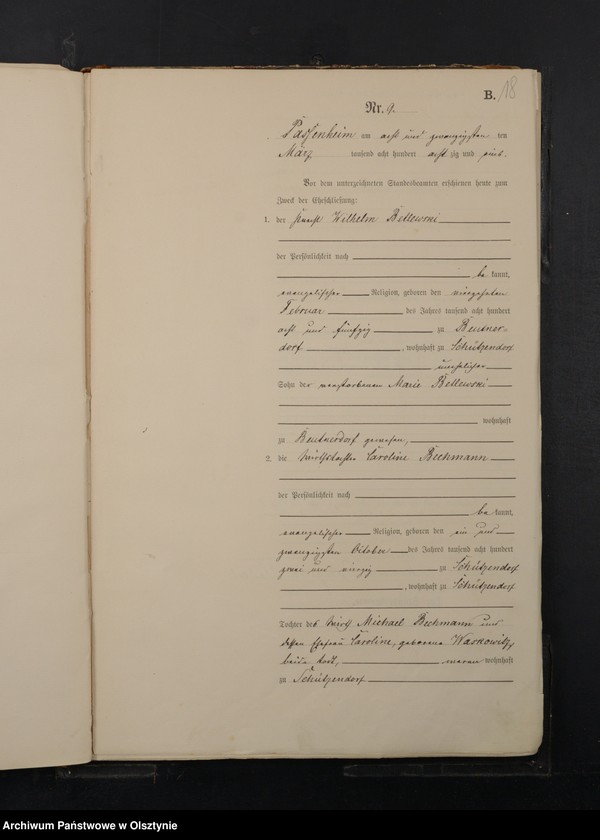 B. 18
Nr. 9.
Passenheim am acht und zwanzigsten ten
März tausend acht hundert acht zig und eins.
Vor dem unterzeichneten Standesbeamten erschienen heute zum
Zweck der Eheschließung:
1. der Knecht Wilhelm Bellewski
der Persönlichkeit nach
be kannt,
evangelischer Religion, geboren den vierzehnten
Februar des Jahres tausend acht hundert
acht und fünfzig zu Beutner-
dorf, wohnhaft zu Schützendorf
unehelicher
Sohn der verstorbenen Marie Bellewski
wohnhaft
zu Beutnerdorf gewesen,
2. die Wirthstochter Caroline Bechmann
der Persönlichkeit nach
be kannt,
evangelischer Religion, geboren den ein und
zwanzigsten October des Jahres tausend acht hundert
zwei und zu Schützendorf
, wohnhaft zu Schützendorf
Tochter des Wirth Michael Bechmann und
dessen Ehefrau Caroline, geborene Waskowitz,
beide todt, waren wohnhaft
zu Schützendorf
Archiwum Państwowe w Olsztynie